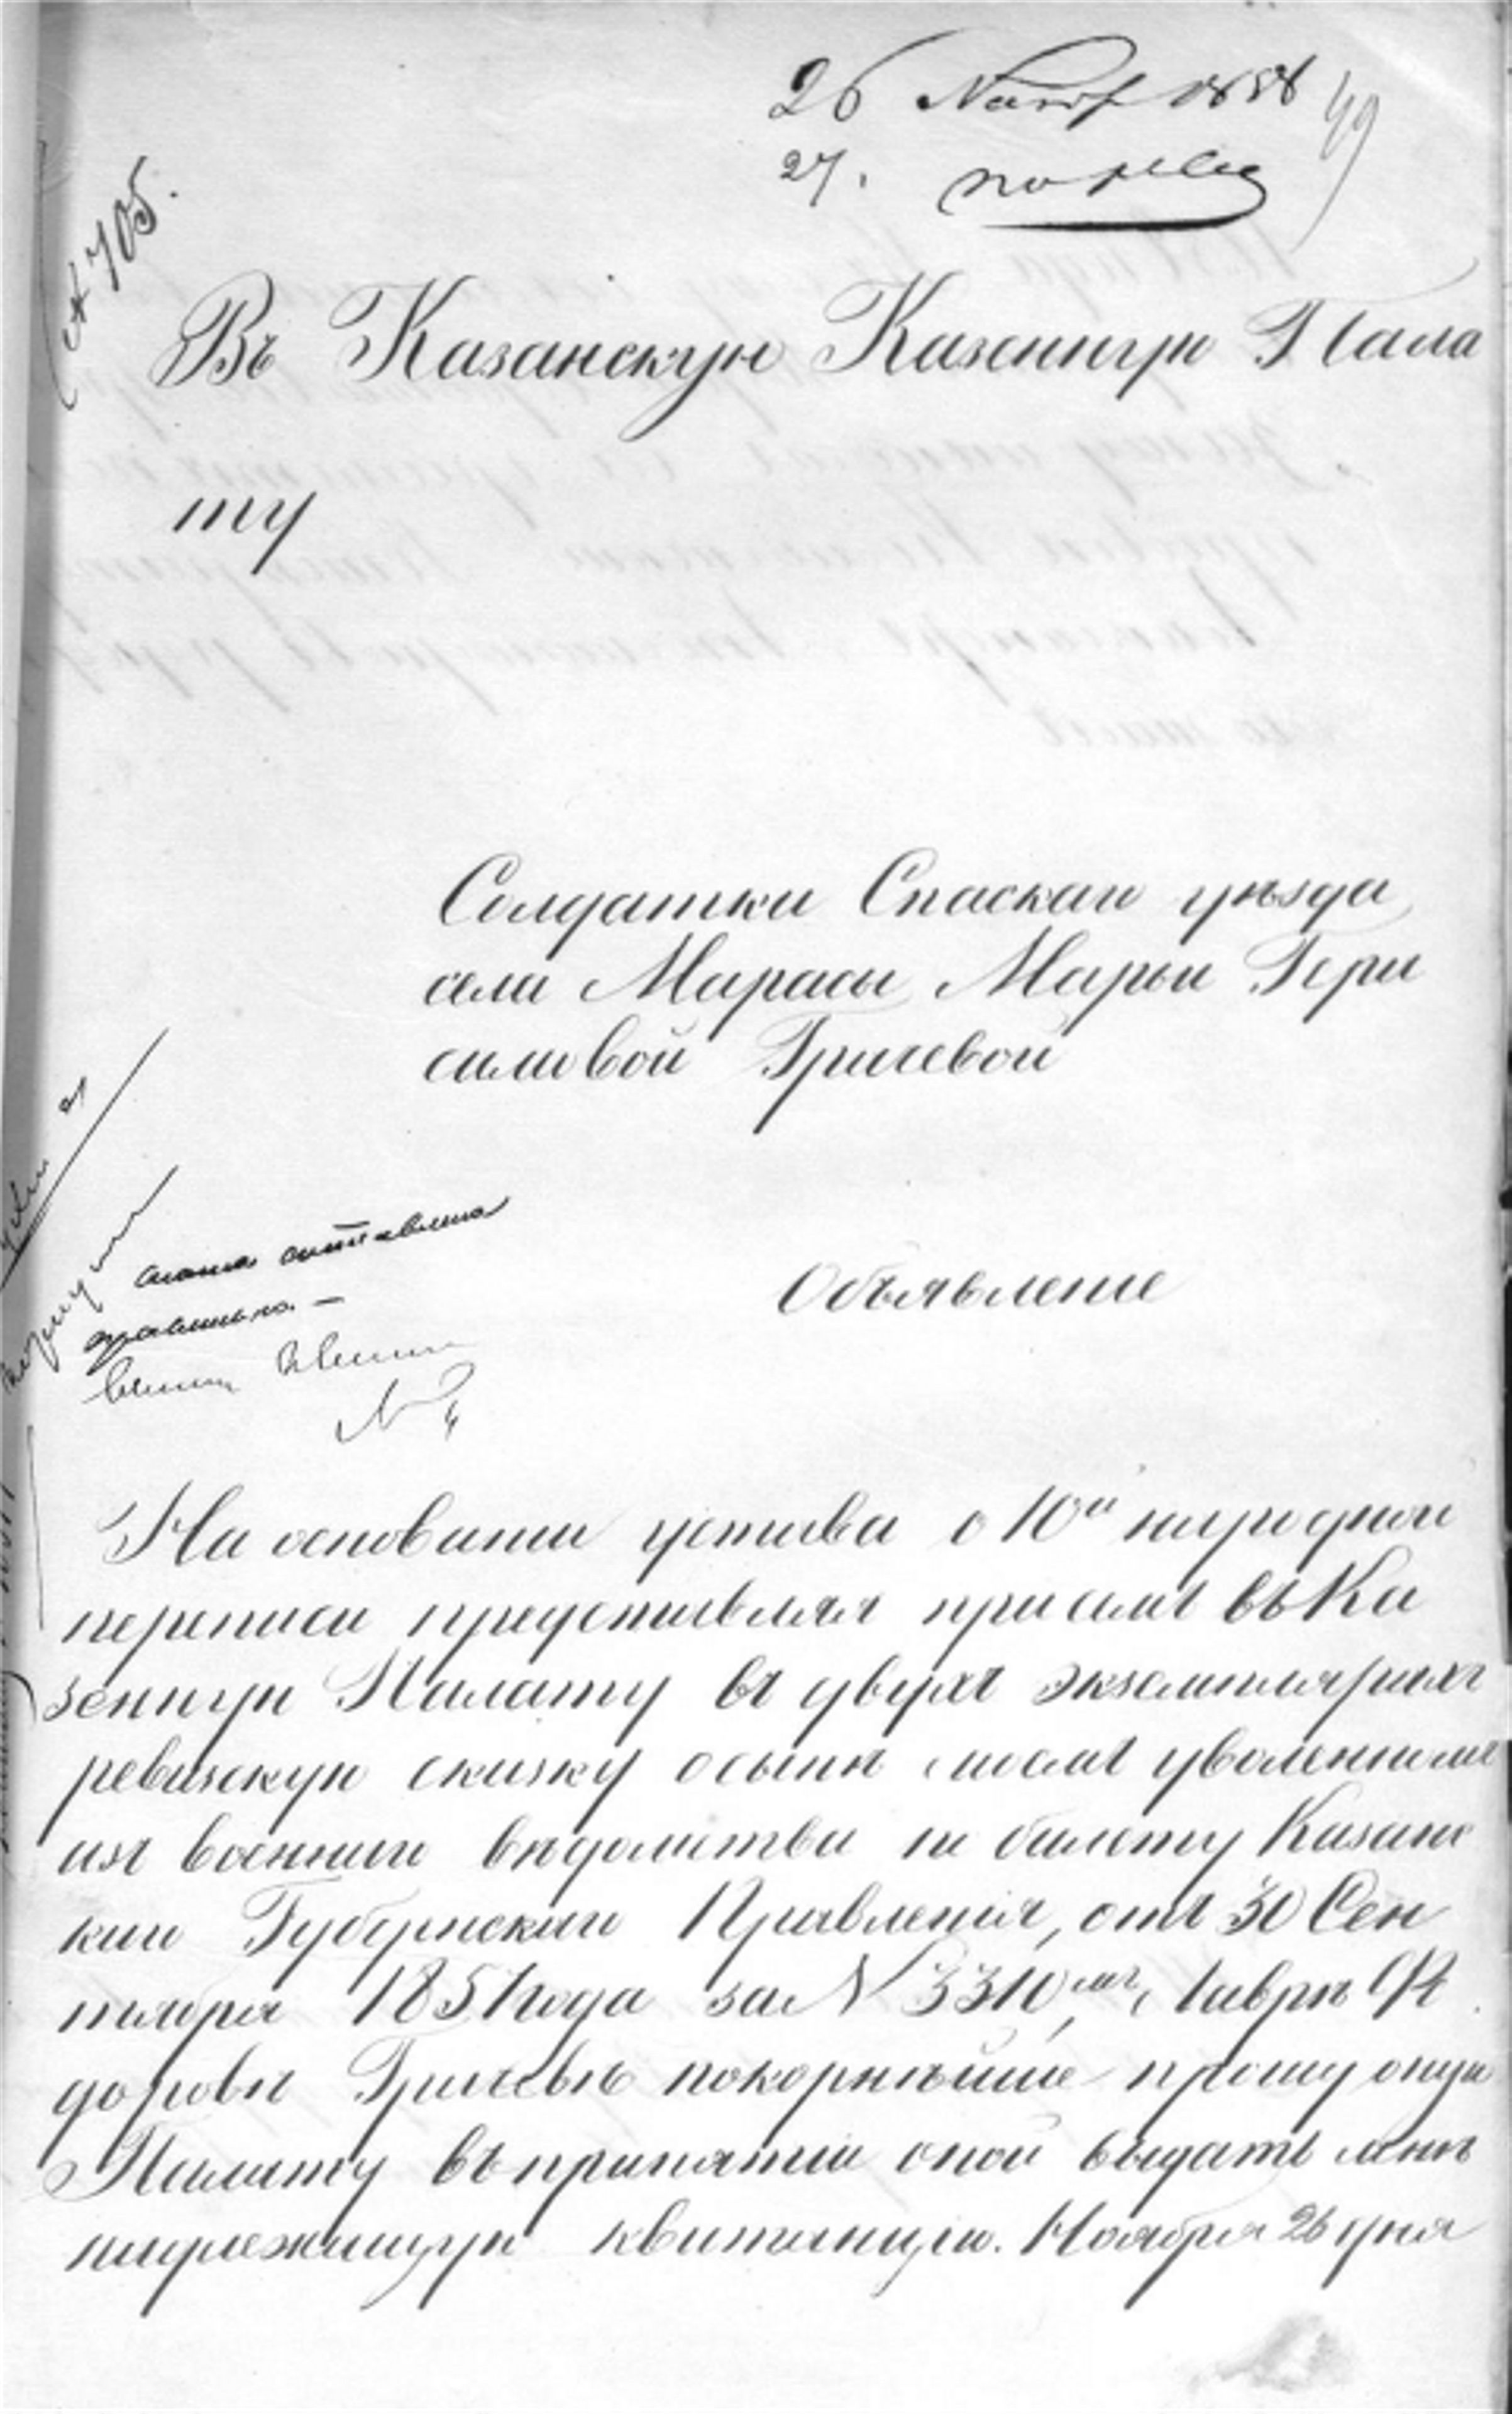 26 Нояб 1858
27.
49
№ 705.
Въ Казанскую Казенную Пала
ту
Солдатки Спаскаго уѣзда
села Марасы Марьи Гера
симовой Грачевой
Объявленіе
На основаніи устава о 10й народной
переписи представляя при семъ въ Ка
зенную Палату въ двухъ экземплярахъ
ревизскую скаску о сынѣ моемъ уволенномъ
изъ военнаго вѣдомства по билету Казанс
каго Губернскаго Правленія, отъ 30 Сен
тября 1851 года за N 3310мъ, Лаврѣ Фе
доровѣ Грачевѣ покорнѣйше прошу оную
Палату въ принятіи оной выдать мнѣ
надлежащую квитанцію. Ноября 26 дня